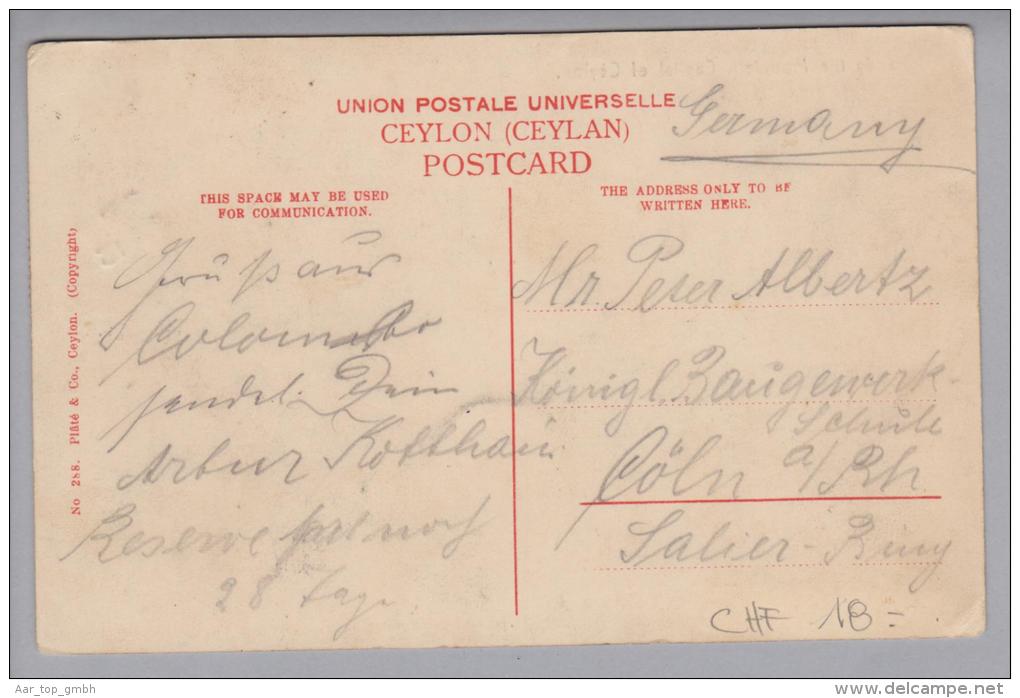 UNION POSTALE UNIVERSELLE
CEYLON (CEYLAN)
POSTCARD
Germany
THIS SPACE MAY BE USED
FOR COMMUNICATION.
THE ADDRESS ONLY TO BE
WRITTEN HERE.
No 288. Plâté & Co., Ceylon. (Copyright)
Gruß aus
Colombo
sendet Dein
Artur Kotthaus
Reserve hat noch
28 Tage
Mr. Peter Albertz
Königl. Baugewerk-
Schule
Cöln a/Rh.
Salier-Ring
CHF 18=
Aar_top_gmbh
www.delcampe.net